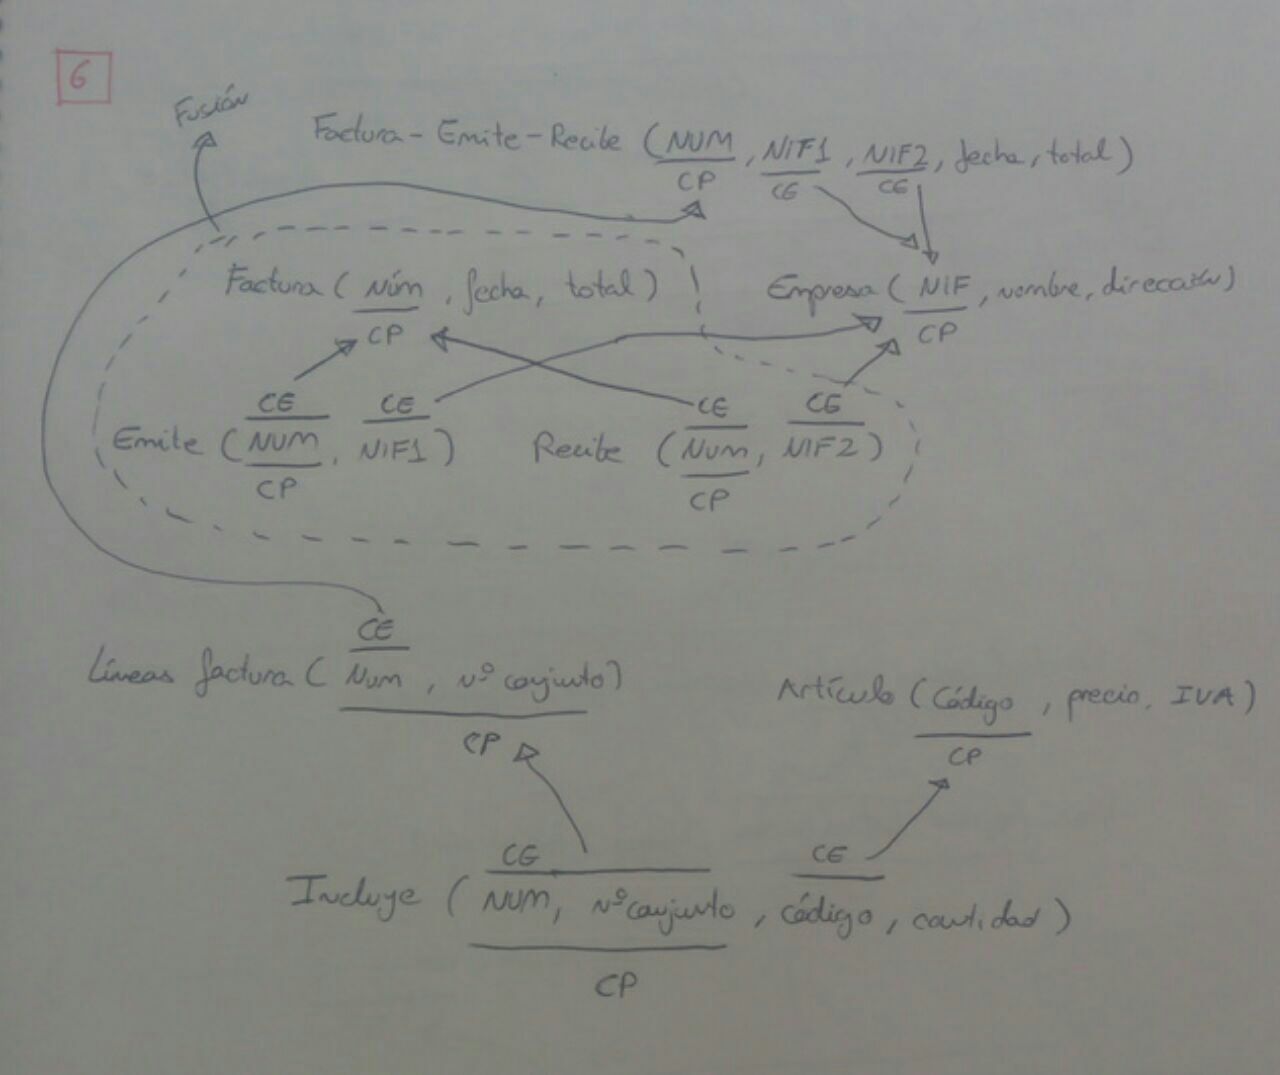 6
Fusión
Factura - Emite - Recibe (NUM, NIF1, NIF2, fecha, total)
CP CE CE
Factura (Núm, fecha, total) Empresa (NIF, nombre, dirección)
CP CP
CE CE CE CE
Emite (NUM, NIF1) Recibe (Num, NIF2)
CP CP
CE
Líneas factura (Num, nº conjunto) Artículo (Código, precio, IVA)
CP CP
CE CE
Incluye (NUM, nº conjunto, código, cantidad)
CP